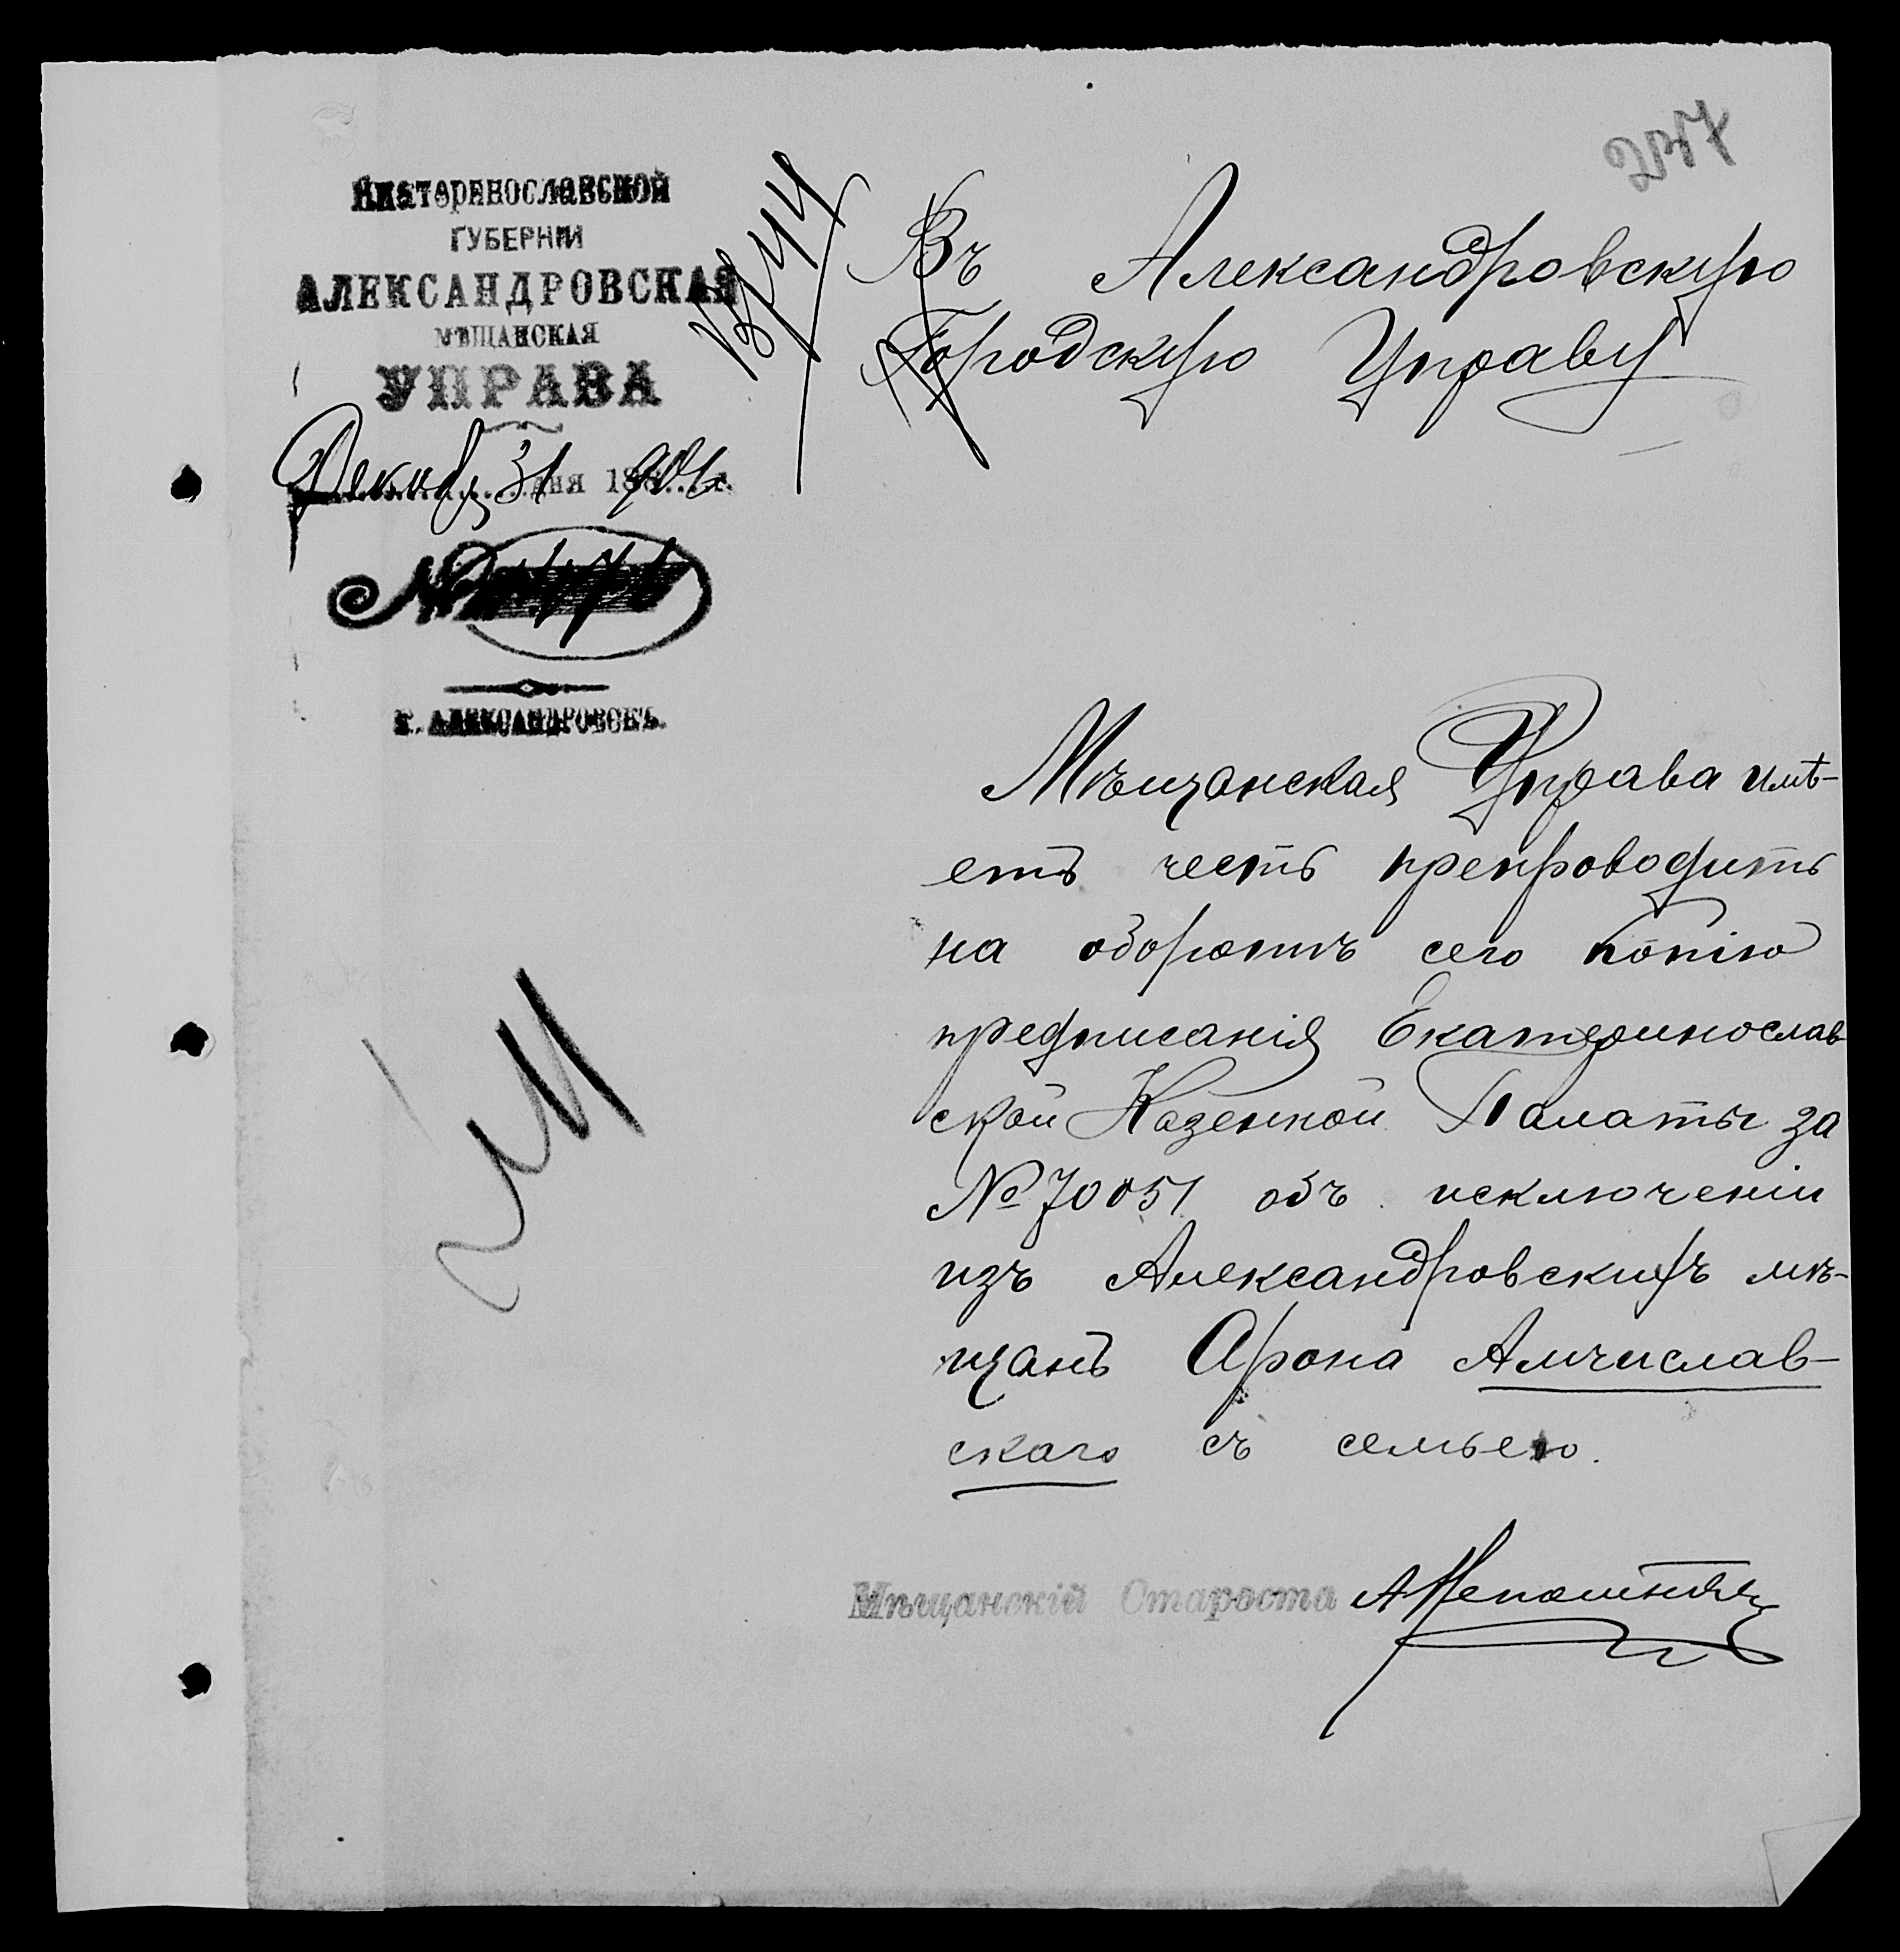 Екатеринославской
ГУБЕРНІИ
АЛЕКСАНДРОВСКАЯ
МѢЩАНСКАЯ
УПРАВА
Декабр 31 дня
№
Г. АЛЕКСАНДРОВСКЪ.
Въ Александровскую
Городскую Управу
Мѣщанская Управа имѣ-
етъ честь препроводить
на оборотѣ сего копію
предписанія Екатеринослав
ской Казенной Палаты за
№ 70051 объ исключеніи
изъ Александровскихъ мѣ-
щанъ Арона Амчислав-
скаго съ семьею.
Мѣщанскій Староста